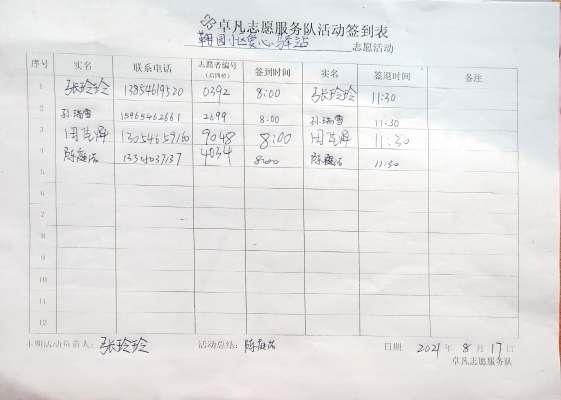 卓凡志愿服务队活动签到表
翔园小区爱心驿站 志愿活动
序号 实名 联系电话 志愿者编号（后四位） 签到时间 实名 签退时间 备注
1 张玲玲 13854619520 0392 8:00 张玲玲 11:30
2 孙瑞雪 15965462661 2699 8:00 孙瑞雪 11:30
3 13054659760 9048 8:00 11:30
4 陈庭洁 1334037137 4034 8:00 陈庭洁 11:30
5
6
7
8
9
10
11
12
本期活动负责人：张玲玲 活动总结：陈庭洁 日期 2021年8月17日
卓凡志愿服务队